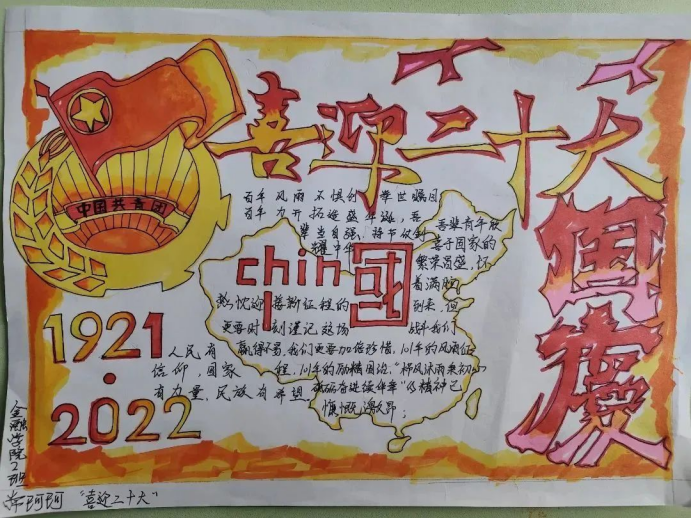 喜迎二十大
国慶
中国共青团
百年风雨不惧创 举世瞩目
百年力开拓
辈当自强
耀中华
吾辈青年放
于国家的
繁荣昌盛,怀
着满腔
chin国
热忱迎接新征程的
到来,但
更要时刻谨记这场
战斗我们
赢得不易,我们更要加倍珍惜,101年的风雨征
程,101年的励精图治,"栉风沐雨来初心
砥砺奋进续华章"的精神已
慷慨激昂;
1921
·
2022
人民有
信仰,国家
有力量,民族有希望
金融学院2班
"喜迎二十大"